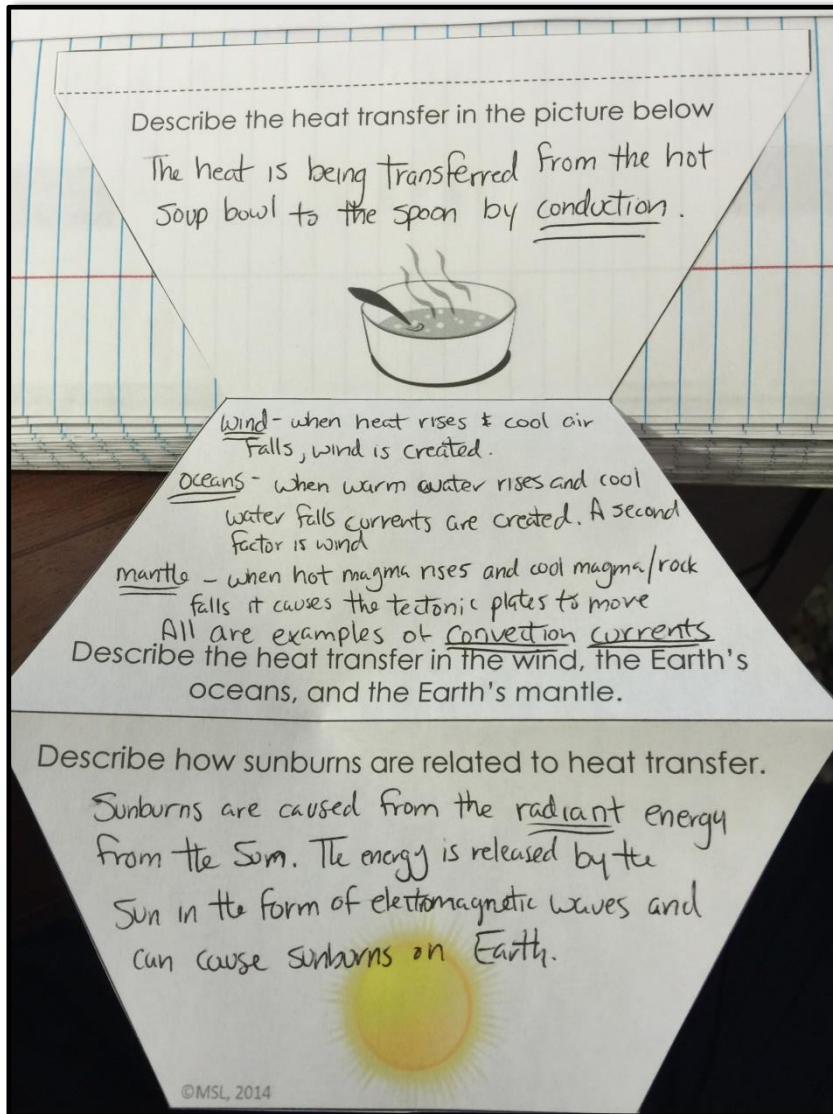 Describe the heat transfer in the picture below
The heat is being transferred from the hot
soup bowl to the spoon by conduction.
wind - when heat rises & cool air
falls, wind is created.
oceans - when warm water rises and cool
water falls currents are created. A second
factor is wind
mantle - when hot magma rises and cool magma/rock
falls it causes the tectonic plates to move
All are examples of convection currents
Describe the heat transfer in the wind, the Earth's
oceans, and the Earth's mantle.
Describe how sunburns are related to heat transfer.
Sunburns are caused from the radiant energy
from the Sun. The energy is released by the
Sun in the form of elettomagnetic waves and
can cause sunburns on Earth.
©MSL, 2014